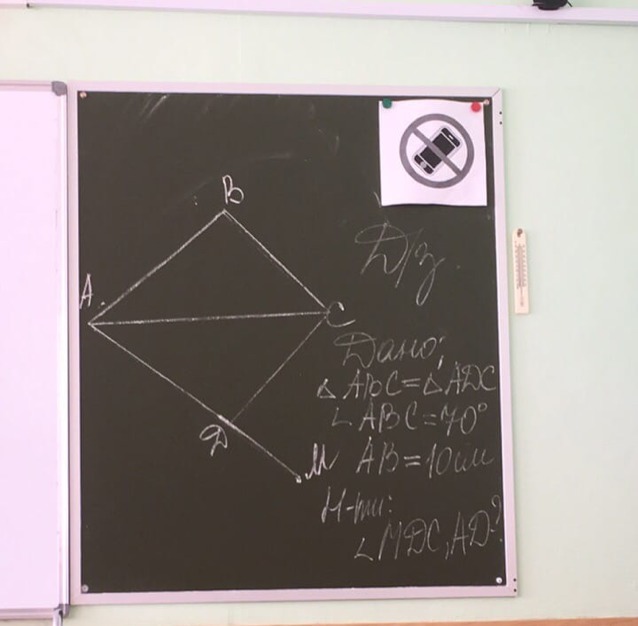 B
A.
C
D
M
Д/з.
Дано:
△ ABC=△ADC
∠ ABC=70°
AB=10см
Н-ти:
∠MDC, AD?